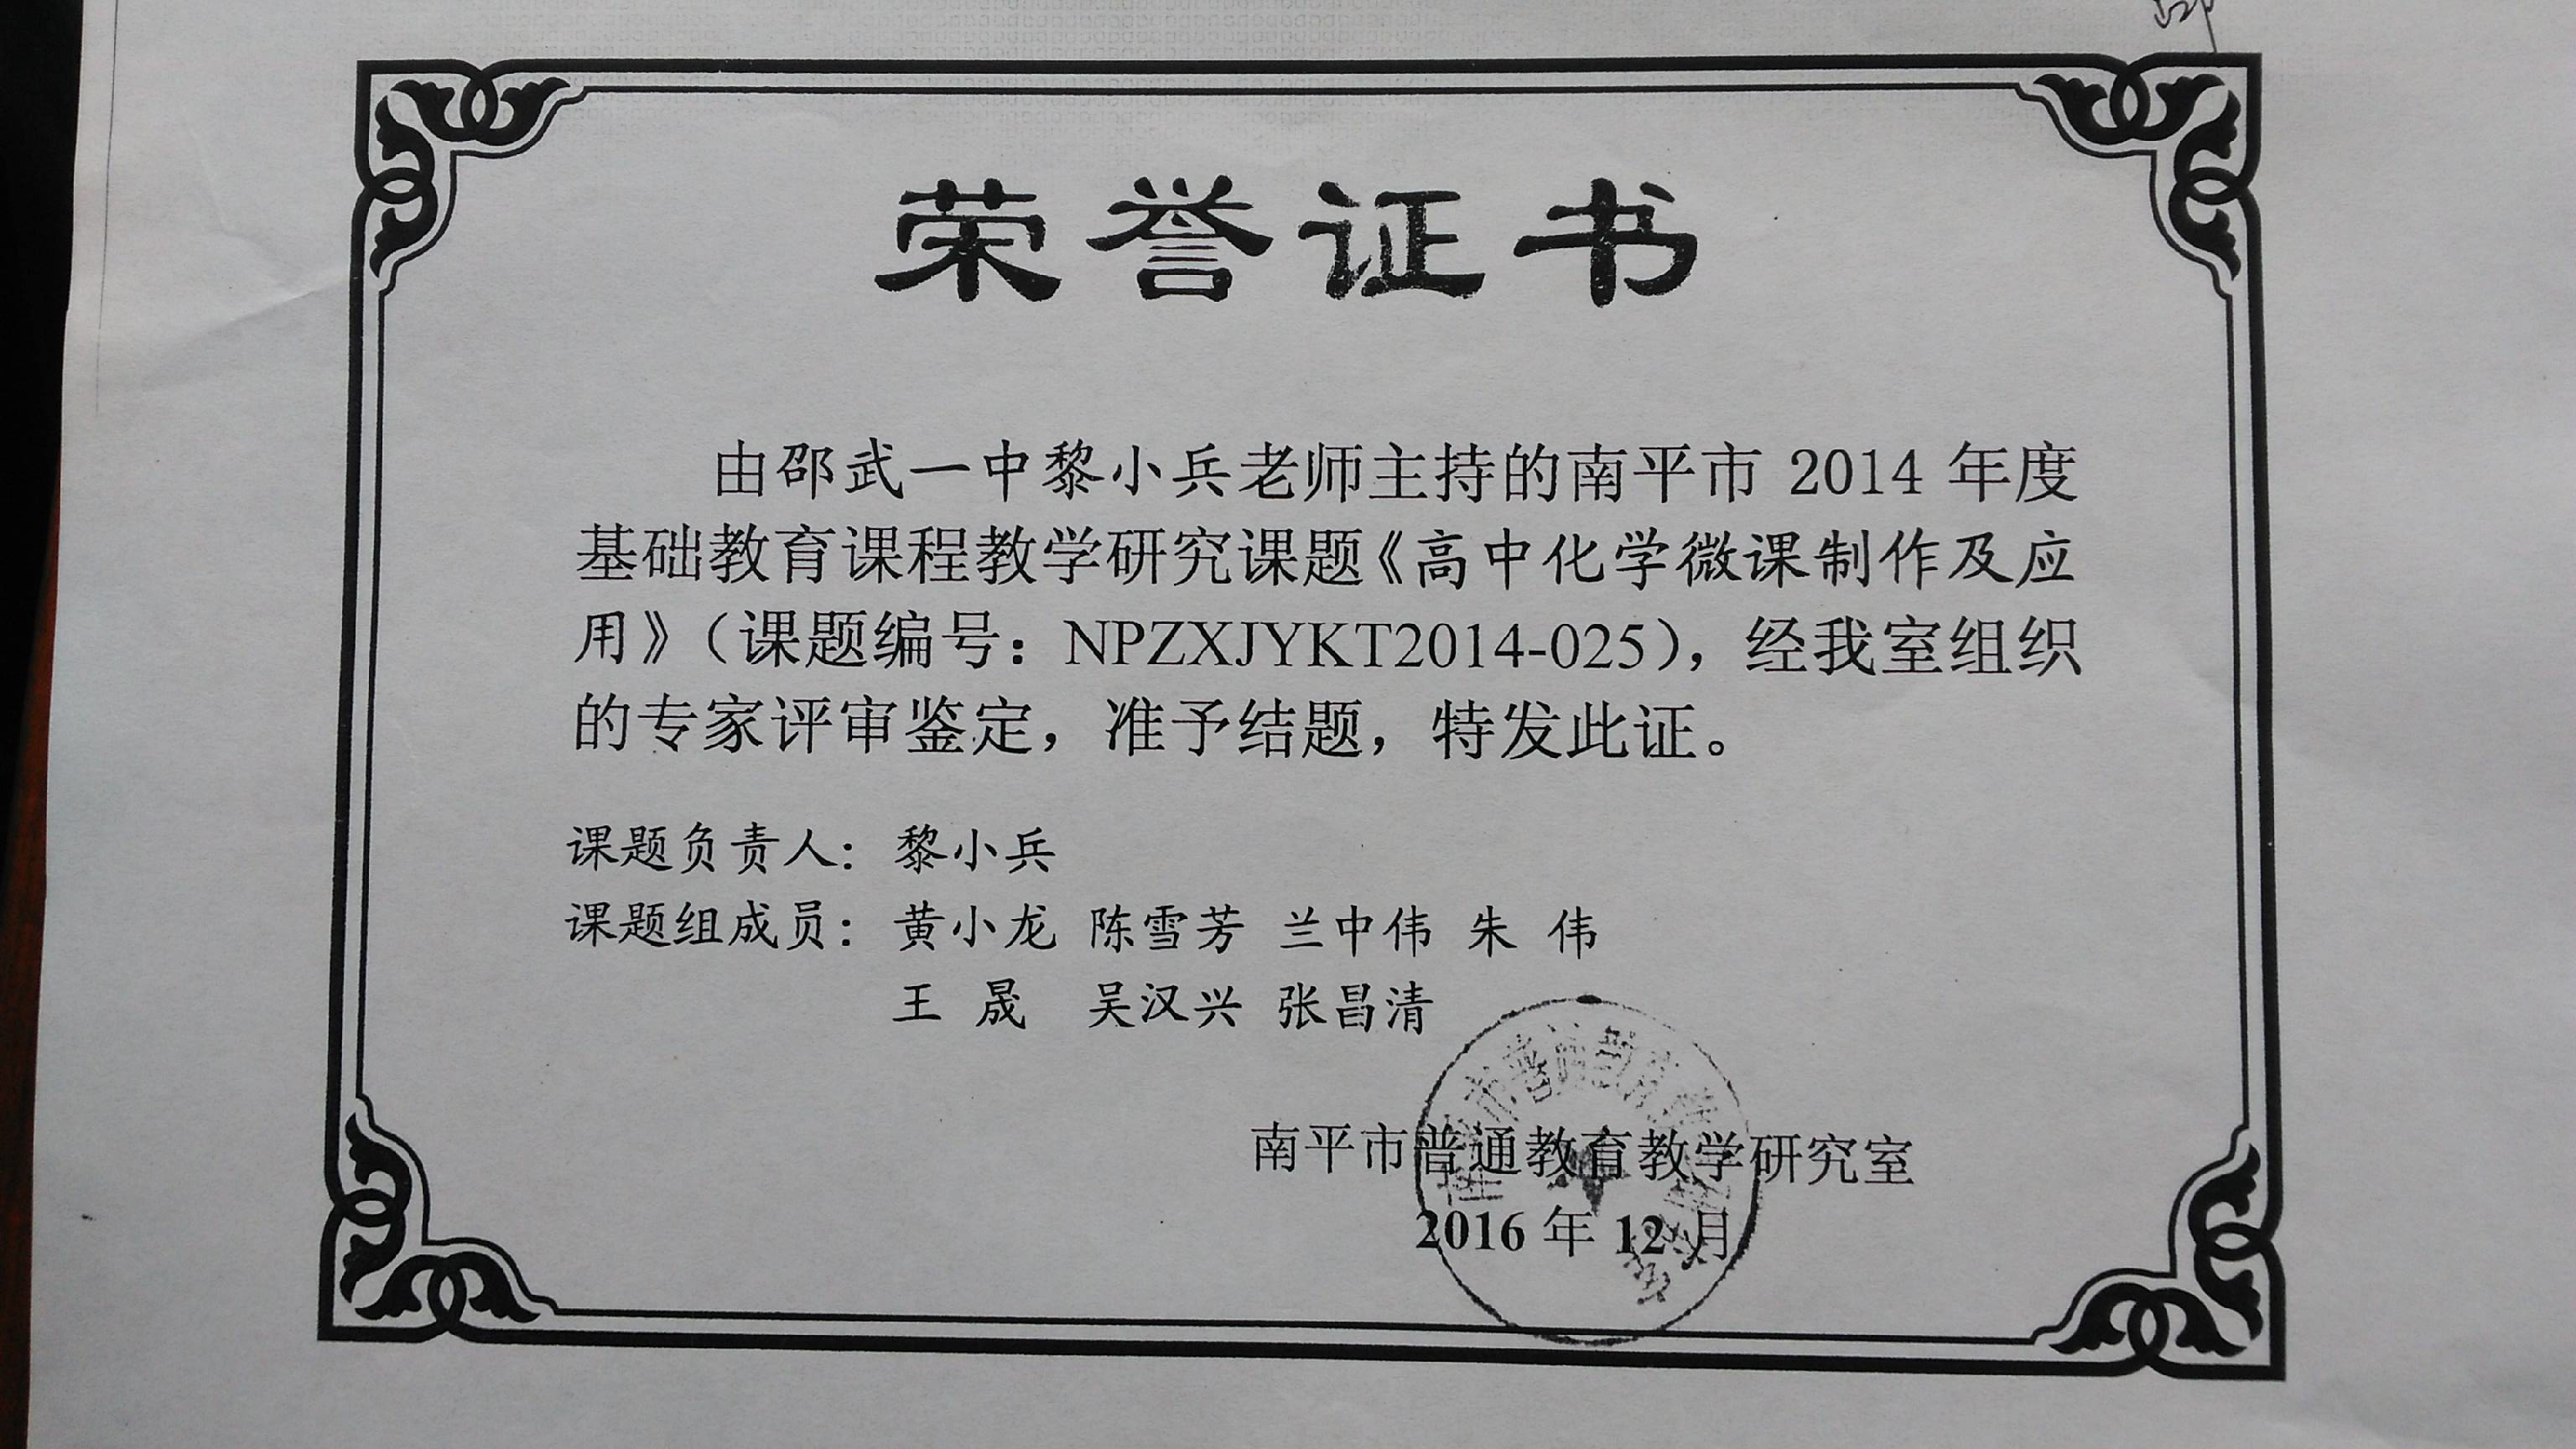 荣誉证书
由邵武一中黎小兵老师主持的南平市 2014 年度
基础教育课程教学研究课题《高中化学微课制作及应
用》（课题编号：NPZXJYKT2014-025），经我室组织
的专家评审鉴定，准予结题，特发此证。
课题负责人：黎小兵
课题组成员：黄小龙 陈雪芳 兰中伟 朱 伟
王 晟 吴汉兴 张昌清
南平市普通教育教学研究室
2016 年 12 月